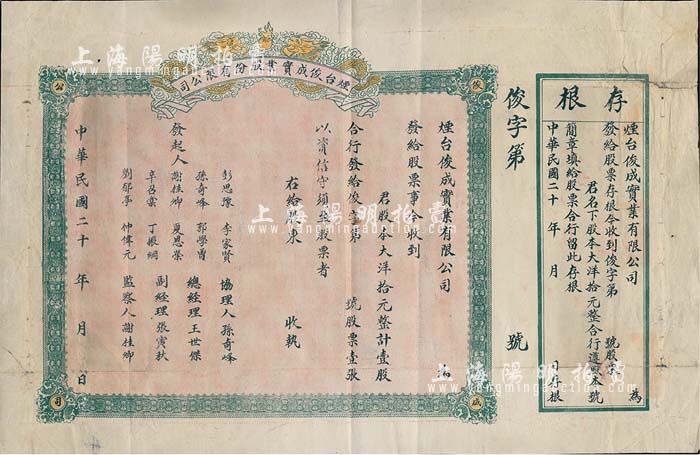 存根
煙台俊成實業有限公司 為
發給股票存根今收到俊字第 號股東
君名下股本大洋拾元整合行遵照本號
簡章填給股票合行留此存根
中華民國二十 年 月 日存根
俊字第 號
煙台俊成實業股份有限公司
俊
成
公
司
煙台俊成實業有限公司 為
發給股票事今收到
君股本大洋拾元整計壹股
合行發給俊字第 號股票壹張
以資信守須至股票者
右給股東 收執
彭思豫 李家賢 協理人 孫奇峰
孫奇峰 郭學曾 總經理 王世傑
發起人 謝桂卿 夏恩榮 副經理 張寅秋
辛召棠 丁振綱 監察人 謝桂卿
劉郁亭 仲偉元
中華民國二十 年 月 日
上海陽明拍賣
www.yangmingauction.com
上海陽明拍賣
www.yangmingauction.com
上海陽明拍賣
www.yangmingauction.com